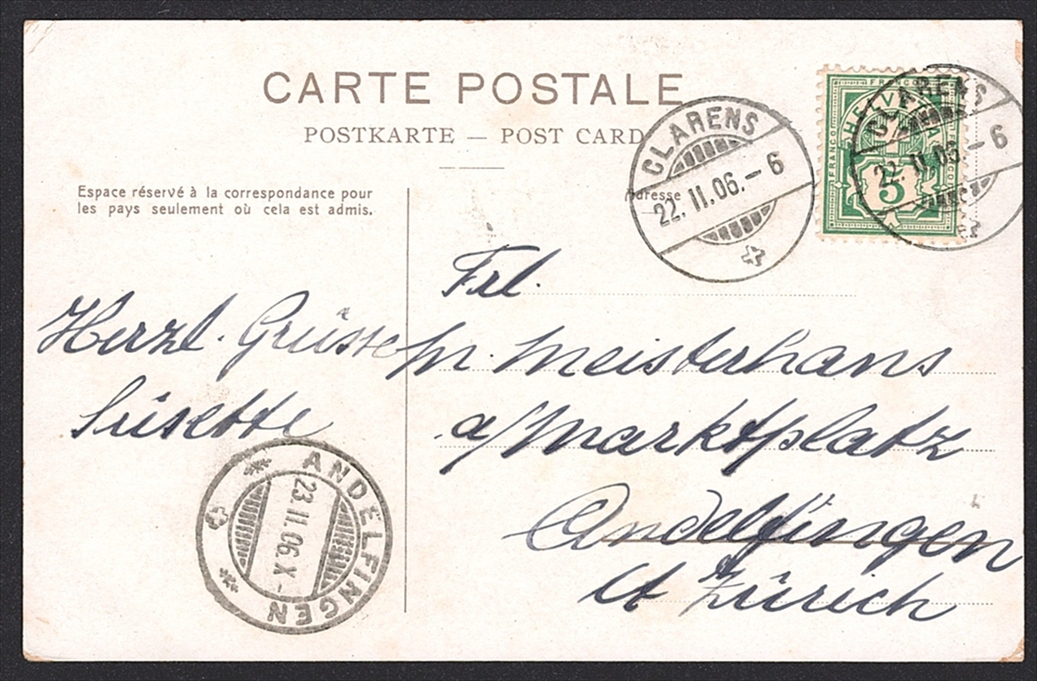 CARTE POSTALE
POSTKARTE — POST CARD
Espace réservé à la correspondance pour
les pays seulement où cela est admis.
Adresse
CLARENS
22. II. 06. – 6
HELVETIA
FRANCO
5
CLARENS
22. II. 06. – 6
Frl.
M. Meisterhans
a/Marktplatz
Andelfingen
Kt Zürich
Herzl. Grüsse
Süsette
ANDELFINGEN
23. II. 06. X –